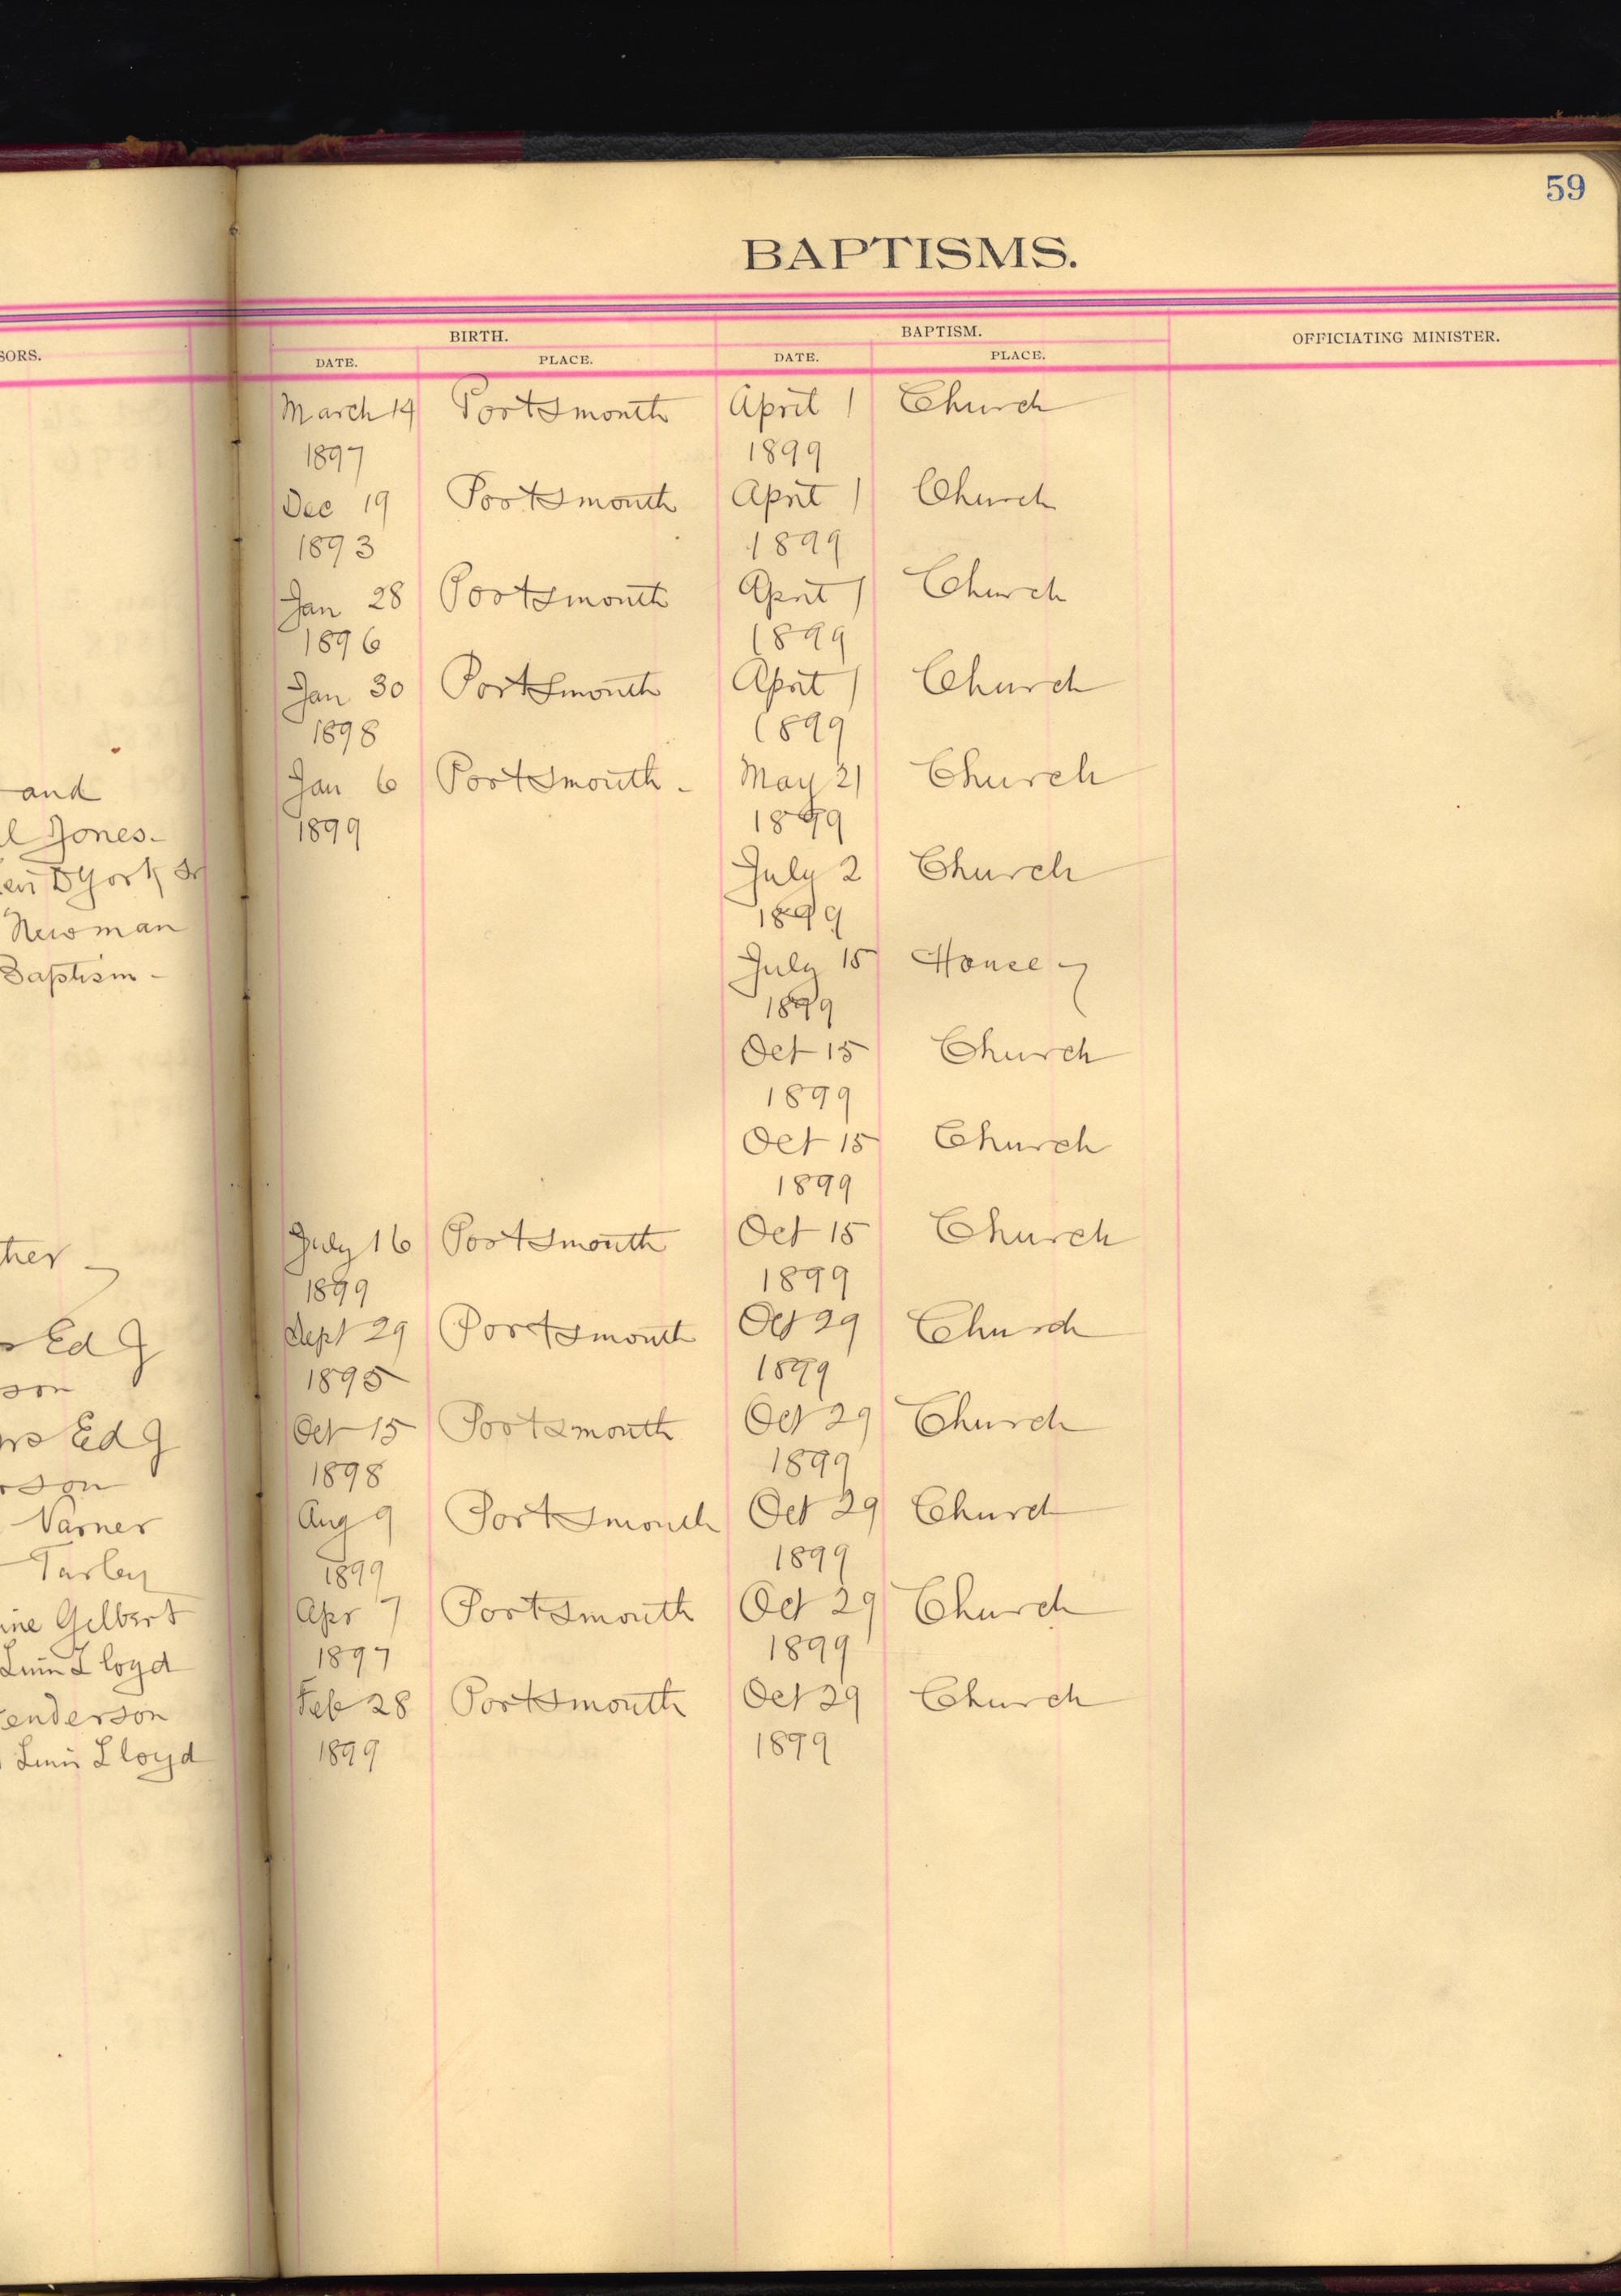 59
BAPTISMS.
SORS. BIRTH. BAPTISM. OFFICIATING MINISTER.
DATE. PLACE. DATE. PLACE.
March 14 Portsmouth April 1 Church
1897 1899
Dec 19 Portsmouth April 1 Church
1893 1899
Jan 28 Portsmouth April 1 Church
1896 1899
Jan 30 Portsmouth April 1 Church
1898 1899
and Jan 6 Portsmouth - May 21 Church
l Jones - 1899 1899
York July 2 Church
Newman 1899
Baptism - July 15 House
1899
Oct 15 Church
1899
Oct 15 Church
1899
ther July 16 Portsmouth Oct 15 Church
1899 1899
Ed J Sept 29 Portsmouth Oct 29 Church
son 1895 1899
rs Ed J Oct 15 Portsmouth Oct 29 Church
rson 1898 1899
Varner Aug 9 Portsmouth Oct 29 Church
Turley 1899 1899
ine Gilbert Apr 7 Portsmouth Oct 29 Church
Lloyd 1897 1899
enderson Feb 28 Portsmouth Oct 29 Church
Lloyd 1899 1899